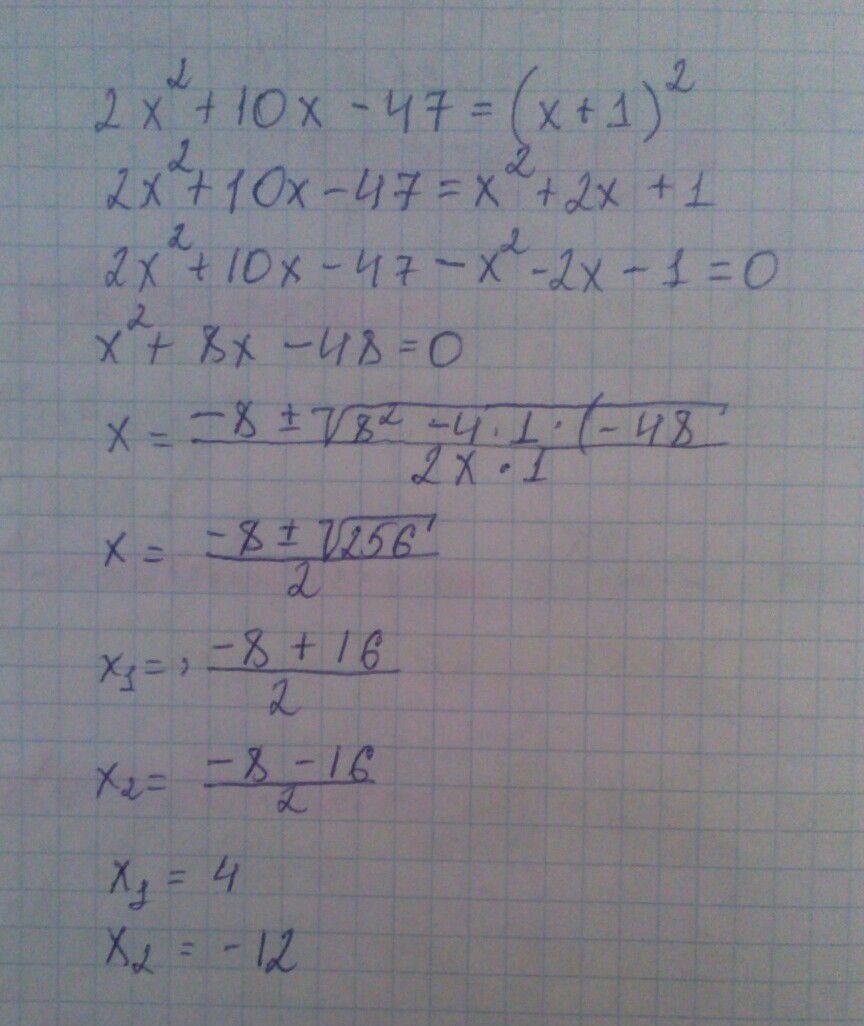 2x² + 10x - 47 = (x + 1)²
2x² + 10x - 47 = x² + 2x + 1
2x² + 10x - 47 - x² - 2x - 1 = 0
x² + 8x - 48 = 0
x = (-8 ± √(8² - 4 · 1 · (-48)) / (2x · 1)
x = (-8 ± √256) / 2
x₁ = , (-8 + 16) / 2
x₂ = (-8 - 16) / 2
x₁ = 4
x₂ = -12